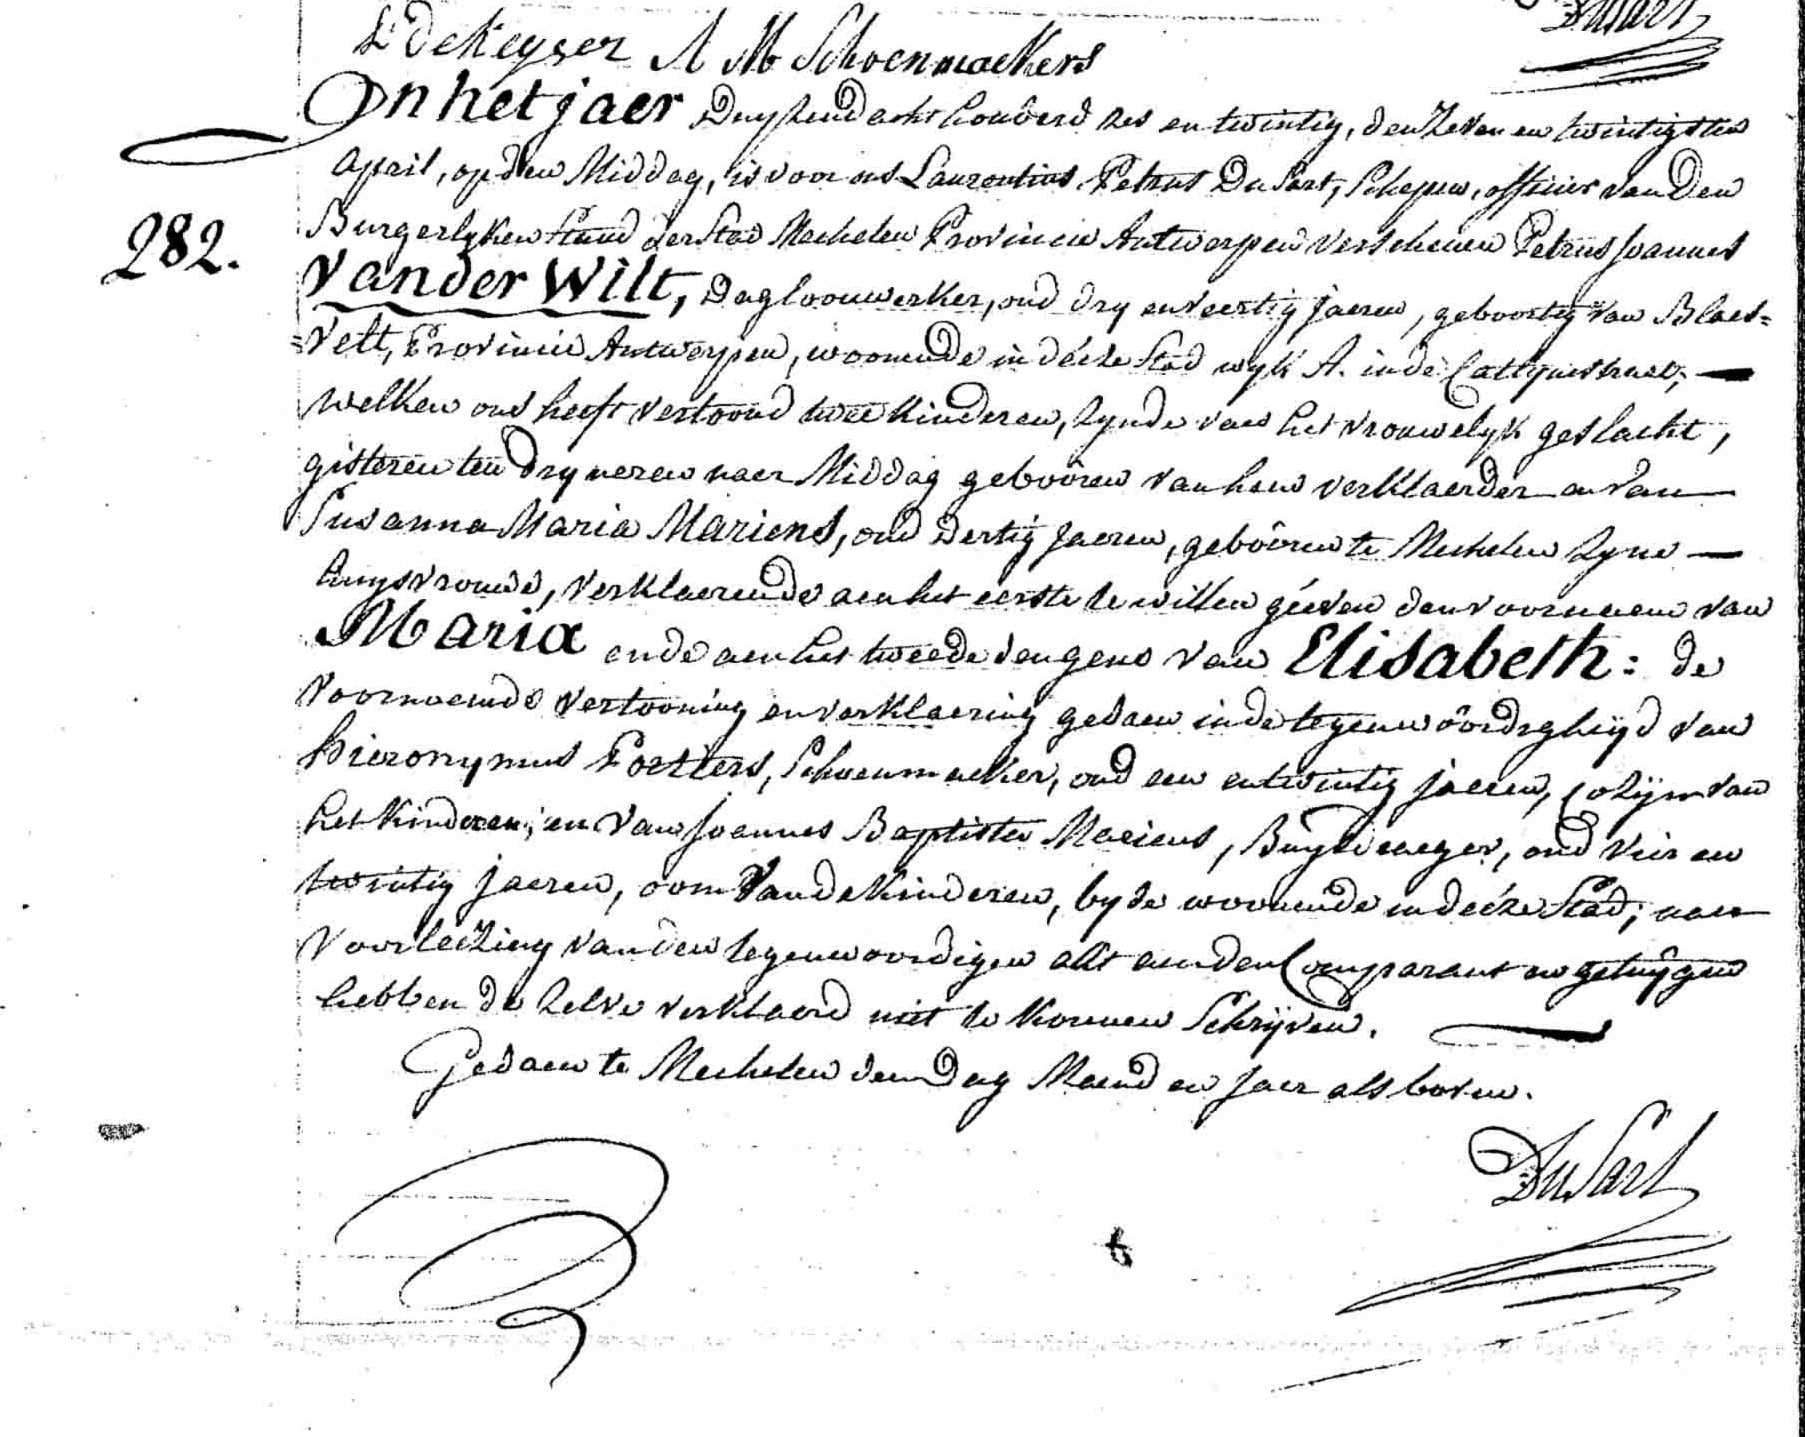 DuSart
L: deKeyser A M Schoenmaekers
In het jaer Duyzend acht honderd zes en twintig, den Zeven en twintigsten
April, op den Middag, is voor ons Laurentius Petrus DuSart, Schepen, officier van Den
282.
Burgerlyken Stand der Stad Mechelen Provincie Antwerpen verschenen Petrus Joannes
Van der Wilt, Dagloonwerker, oud dry en veertig jaeren, geboortig van Blaes=
=velt, Provincie Antwerpen, woonende in déeze Stad wyk A. in de Cattynestraet,
welken ons heeft vertoond twee kinderen, zynde van het vrouwelyk geslacht,
gisteren ten dry ueren naer Middag gebóóren van hem verklaerder en van
Susanna Maria Mariens, oud dertig Jaeren, gebóóren te Mechelen zyne
huysvrouwe, verklaerende aen het eerste te willen géeven den voornaem van
Maria ende aen het tweede dengene van Elisabeth: de
voornoemde vertooning en verklaering gedaen in de tegenwóórdigheyd van
hieronymus Portiers, Schoenmaeker, oud een en twintig jaeren, Cozyn van
het kinderen; en van Joannes Baptista Mariens, Buyldraeger, oud vier en
twintig jaeren, oom Van de kinderen, byde woonende in deéze Stad; naer
Voorleézing van den tegenwoordigen akt aen den Comparant en getuÿgen
hebben de zelve verklaerd niet te konnen Schrÿven.
Gedaen te Mechelen den Dag Maend en Jaer als boven.
DuSart